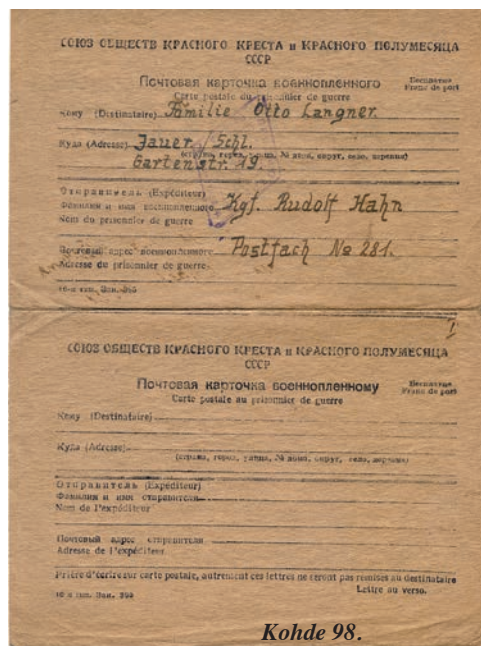 СОЮЗ ОБЩЕСТВ КРАСНОГО КРЕСТА и КРАСНОГО ПОЛУМЕСЯЦА
СССР
Почтовая карточка военнопленного
Carte postale du prisonnier de guerre
Бесплатно
Franc de port
Кому (Destinataire) Familie Otto Langner.
Куда (Adresse) Jauer / Schl.
(страна, город, улица, № дома, округ, село, деревня)
Gartenstr. 19.
Отправитель (Expéditeur)
Фамилия и имя военнопленного Kgf. Rudolf Hahn
Nom du prisonnier de guerre
Почтовый адрес военнопленного Postfach № 281.
Adresse du prisonnier de guerre
16-я тип. Зак.
СОЮЗ ОБЩЕСТВ КРАСНОГО КРЕСТА и КРАСНОГО ПОЛУМЕСЯЦА
СССР
Почтовая карточка военнопленному
Carte postale au prisonnier de guerre
Бесплатно
Franc de port
Кому (Destinataire)
Куда (Adresse)
(страна, город, улица, № дома, округ, село, деревня)
Отправитель (Expéditeur)
Фамилия и имя отправителя
Nom de l'expéditeur
Почтовый адрес отправителя
Adresse de l'expéditeur
Prière d'écrire sur carte postale, autrement ces lettres ne seront pas remises au destinataire
Lettre au verso.
16-я тип. Зак.
Kohde 98.